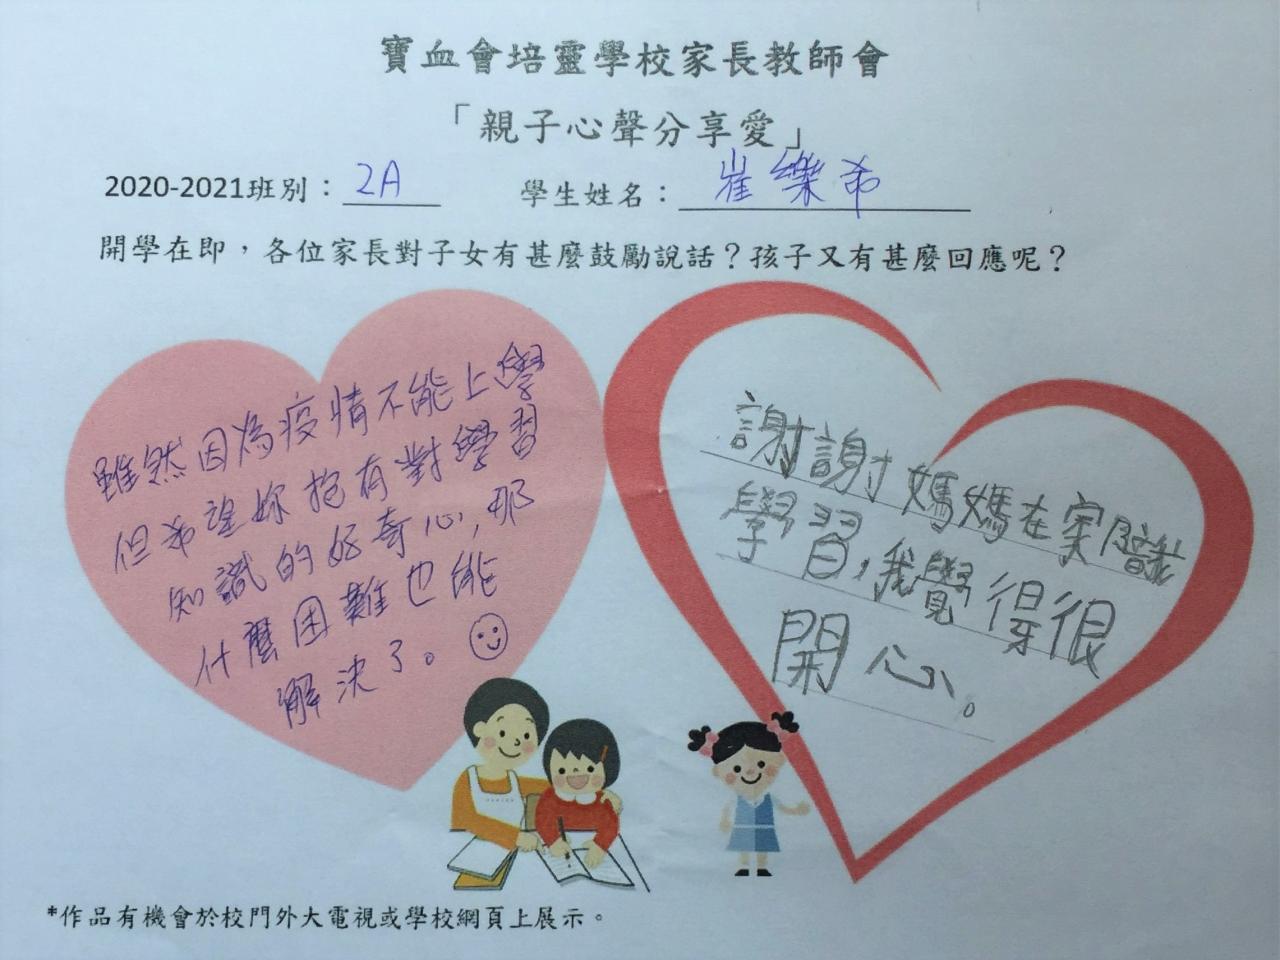 寶血會培靈學校家長教師會
「親子心聲分享愛」
2020-2021班別：2A 學生姓名：崔樂希
開學在即，各位家長對子女有甚麼鼓勵說話？孩子又有甚麼回應呢？
雖然因為疫情不能上學
但希望妳抱有對學習
知識的好奇心,那
什麼困難也能
解決了。
謝謝媽媽在家陪我
學習,我覺得很
開心。
*作品有機會於校門外大電視或學校網頁上展示。